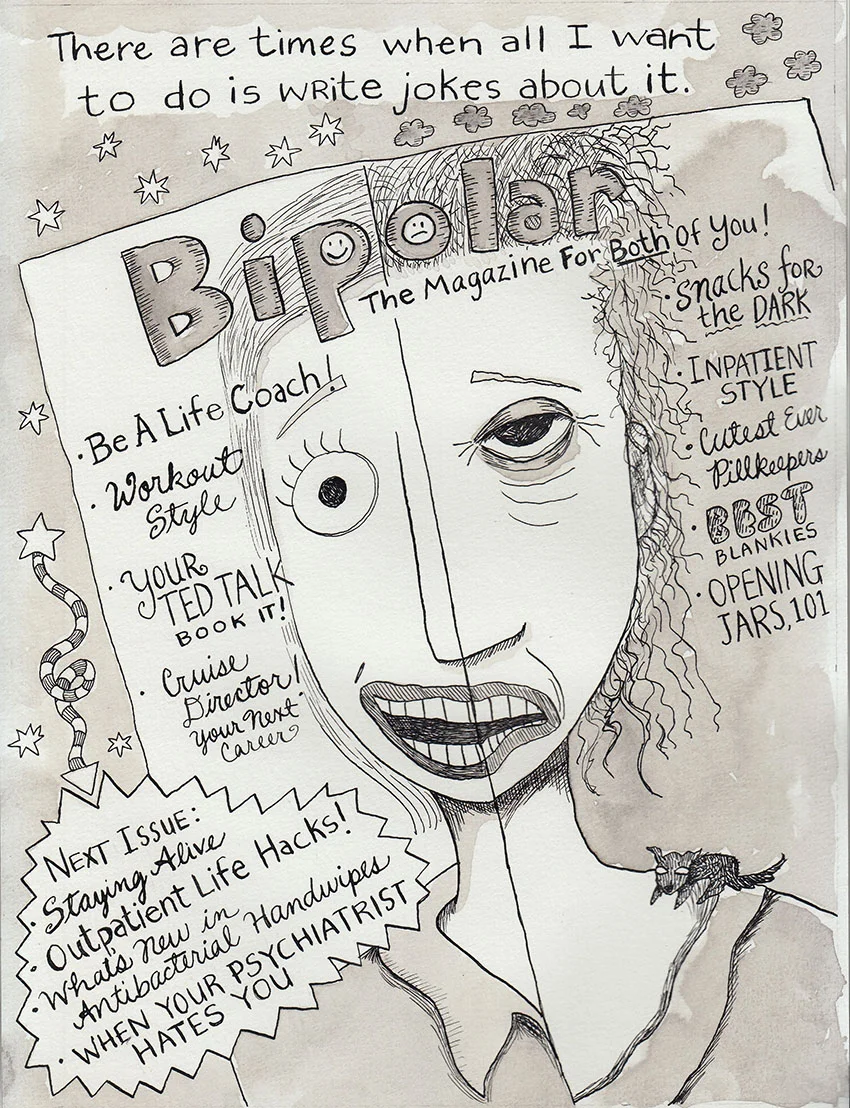 There are times when all I want
to do is write jokes about it.
Bipolar
The Magazine For Both Of You!
· Be A Life Coach!
· Workout
Style
· YOUR
TED TALK
BOOK IT!
· Cruise
Director!
Your Next
Career?
· Snacks for
the DARK
· INPATIENT
STYLE
· Cutest Ever
Pillkeepers
· BEST
BLANKIES
· OPENING
JARS, 101
NEXT ISSUE:
· Staying Alive
· Outpatient Life Hacks!
· What's New in
Antibacterial Handwipes
· WHEN YOUR PSYCHIATRIST
HATES YOU